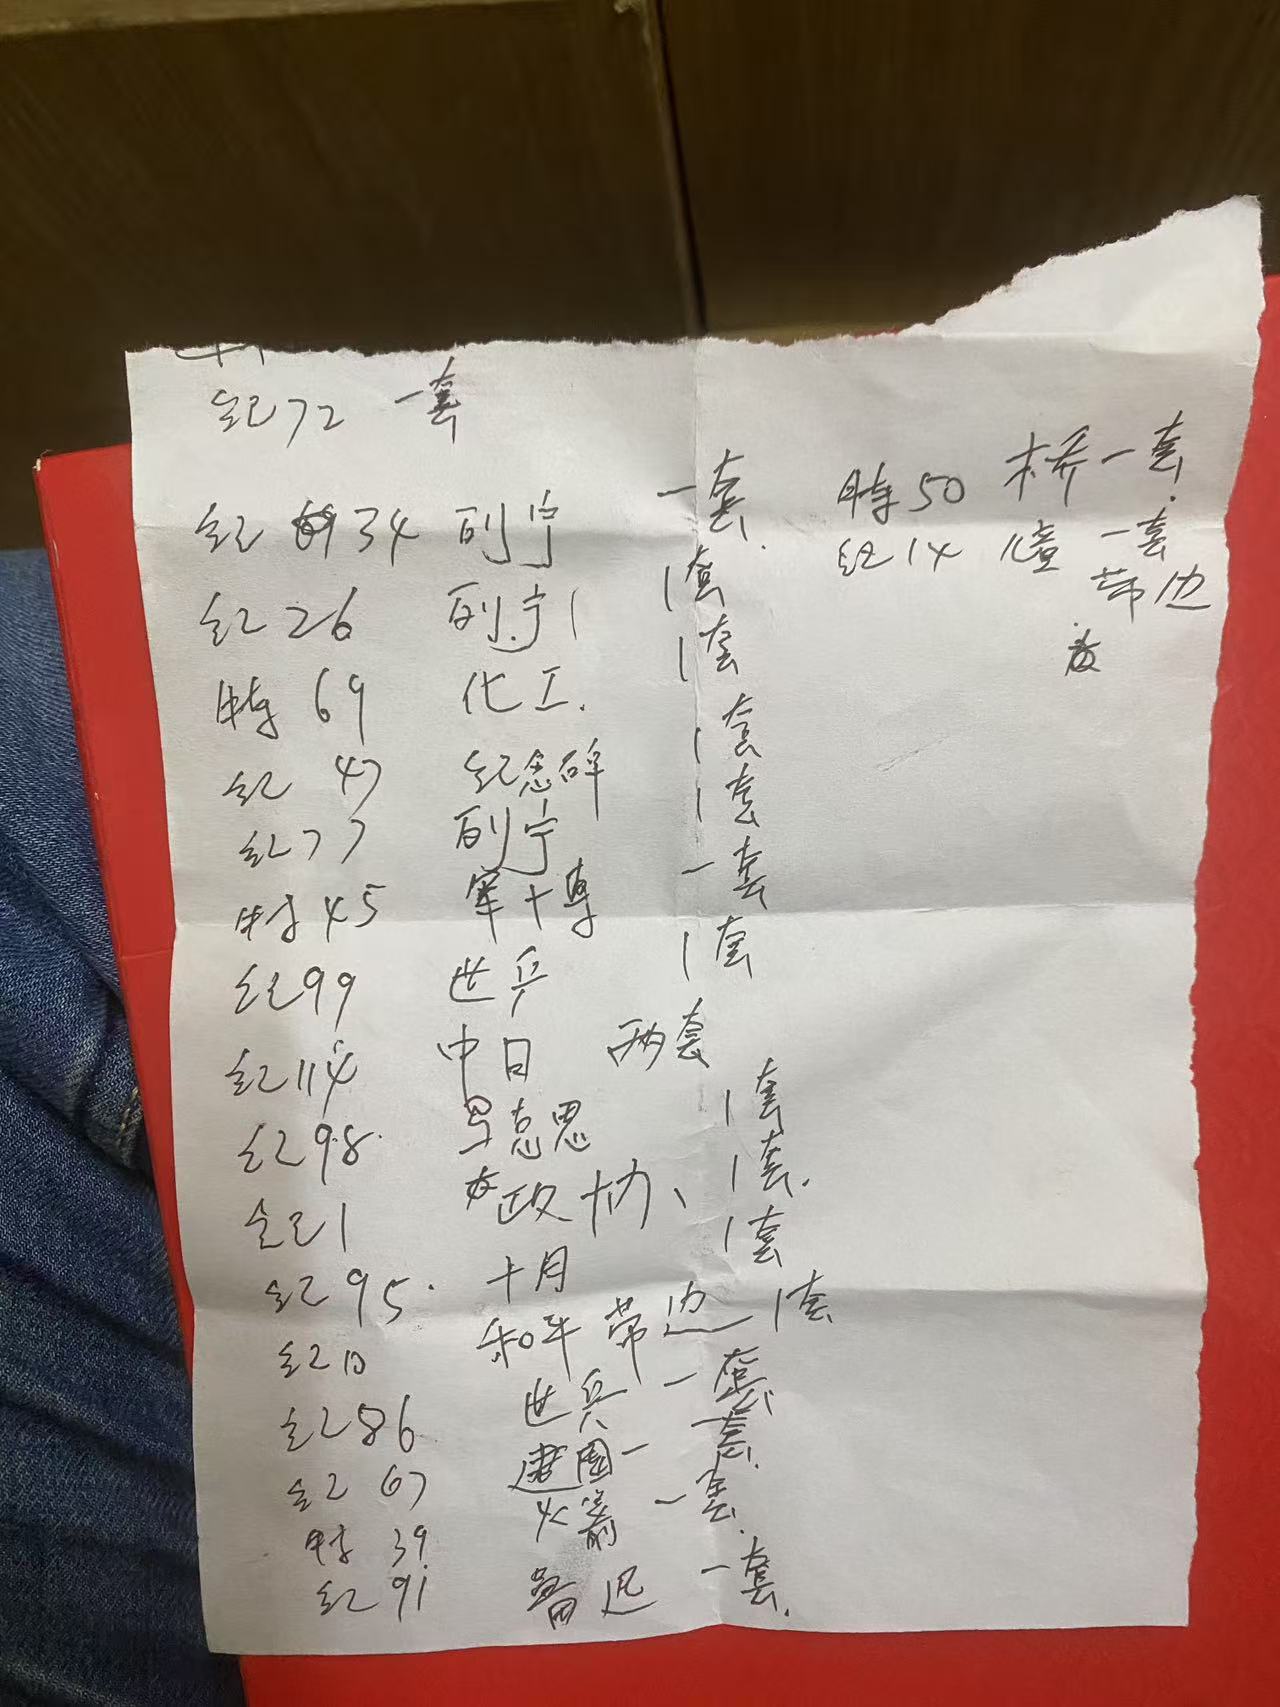 纪72 一套
纪34 列宁 一套
纪26 列宁 1套
特69 化工. 1套
纪47 纪念碑 1套
纪77 列宁 1套
特45 军博 一套
纪99 世乒 1套
纪114 中日 两套
纪98 马克思 1套
纪1 政协、 1套.
纪95. 十月 1套
纪10 和平 带边 1套
纪86 世乒 一套
纪67 建国 一套
特39 火箭 一套.
纪91 一套.
特50 桥 一套
纪14 儿童 一套
带边